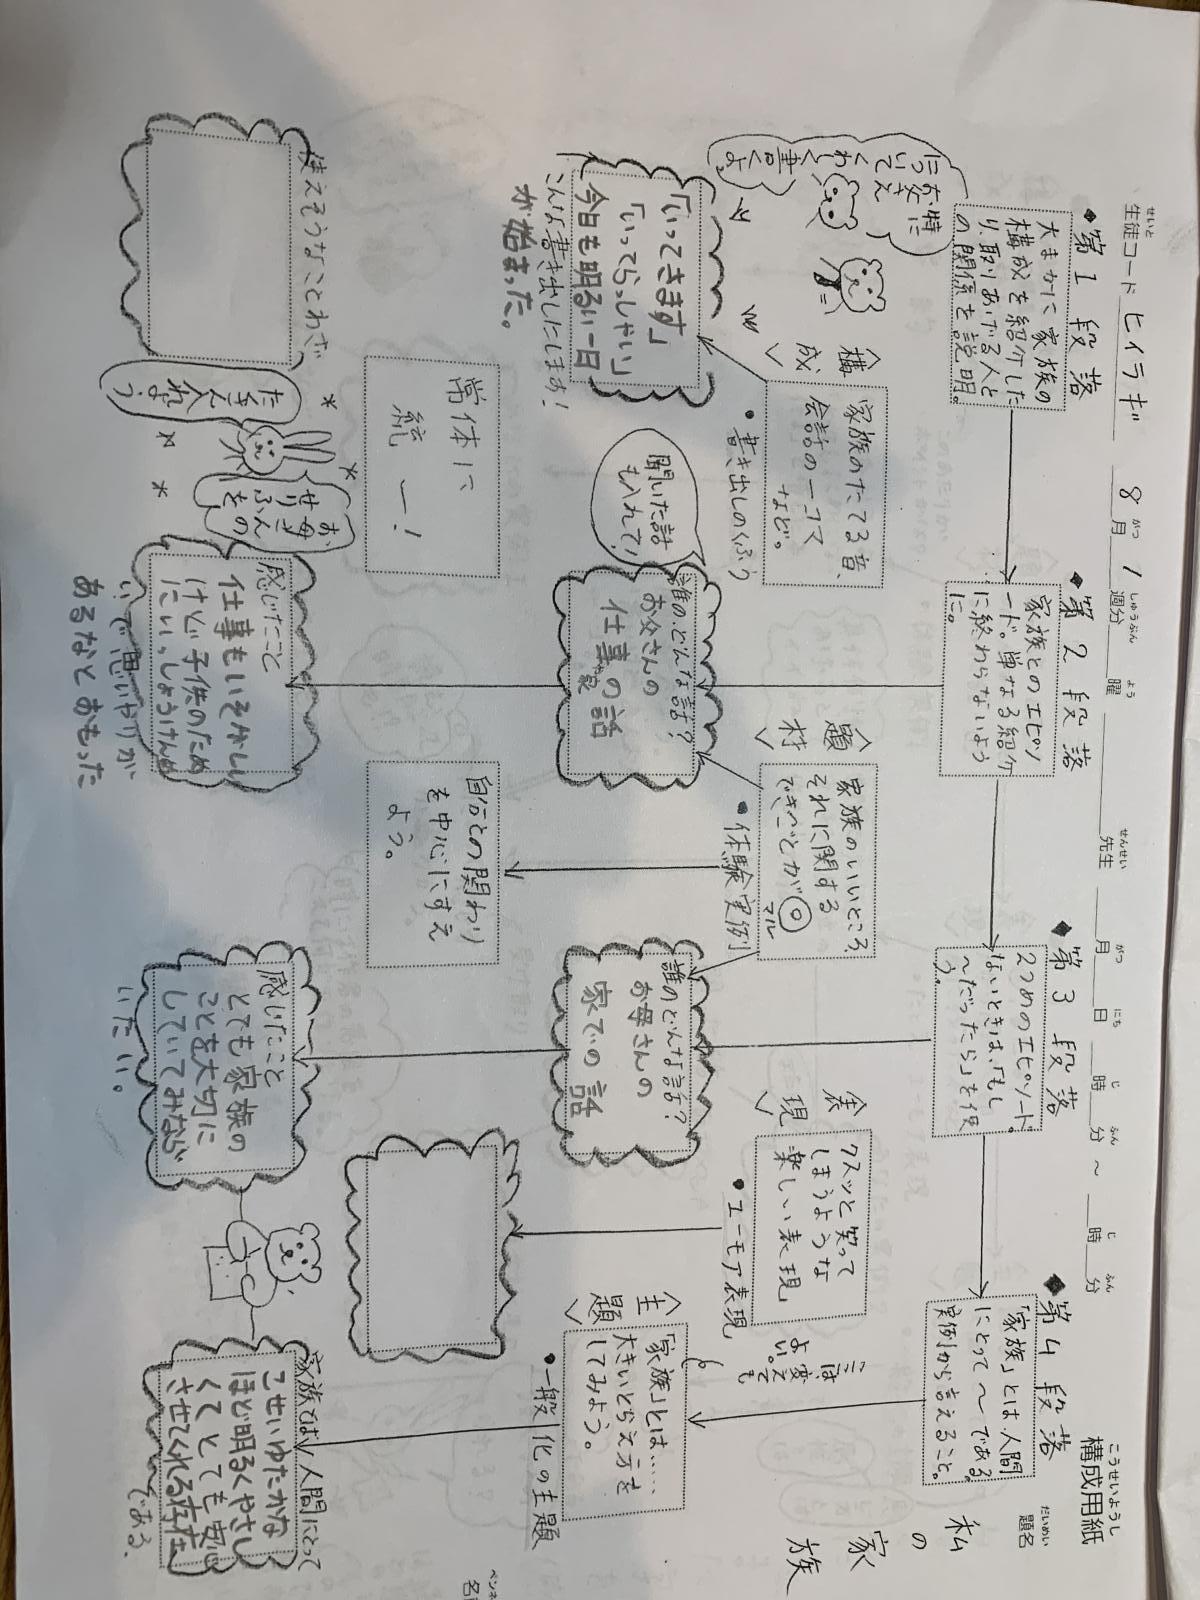 構成用紙
こうせいようし
題名
だいめい
私
の
家
族
生徒コード ヒイラギ 8月1週分 曜 先生 月 日 時 分～ 時 分
せいと がつ しゅうぶん よう せんせい がつ にち じ ふん じ ふん
◆第1段落
大まかに家族の
構成を紹介した
り、取りあげる人と
の関係を説明。
特に
お父さん
について
くわしく
書くよ
〈構成〉
家族のたてる音、
会話の一コマ
など。
・書き出しのくふう
「いってきます」
「いってらっしゃい」
今日も明るい一日
が始まった。
こんな書き出しにします!
常体に
統一!
使えそうなことわざ
たくさん
入れよう
お母さん
のせりふを
◆第2段落
家族とのエピソ
ード。単なる紹介
に終わらないよう
に。
〈題材〉
家族のいいところ、
それに関する
できごとが◎
マル
・体験実例
聞いた話
も入れて!
誰の、どんな話?
お父さんの
仕事や家の話
感じたこと
仕事もいそがしい
けど子供のため
にいっしょうけんめ
いで思いやりが
あるなとおもった
自分との関わり
を中心にすえ
よう。
◆第3段落
2つめのエピソード。
ないときは、「もし
～だったら」を使
う。
〈表現〉
クスッと笑って
しまうような
楽しい表現
・ユーモア表現
誰のどんな話?
お母さんの
家での話
感じたこと
とても家族の
ことを大切に
していてみなら
いたい。
◆第4段落
「家族」とは人間
にとって～である。
実例から言えること。
ここは
変えても
よい。
〈主題〉
「家族」とは……
大きいとらえ方を
してみよう。
・一般化の主題
家族とは、人間にとって
こせいゆたかな
ほど明るくやさし
くてとても安心
させてくれる存在
である。